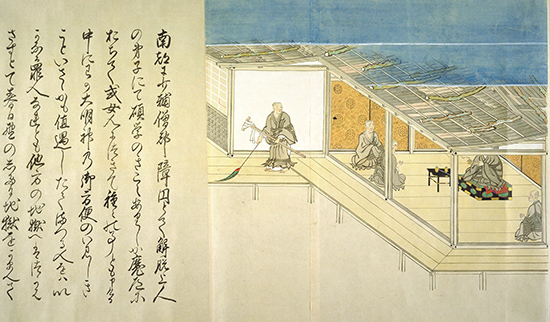 南都に少輔僧都璋円とて解脱上人
の弟子にて碩学のきこえありしか魔道に
おちて或女人につきて種々の事とも申ける
中に我大明神の御方便のいみしき
こといさゝかも値遇したてまつる人をはい
かなる罪人なれとも他方の地獄へはつかは
さすして春日野のしたに地獄をかまへて